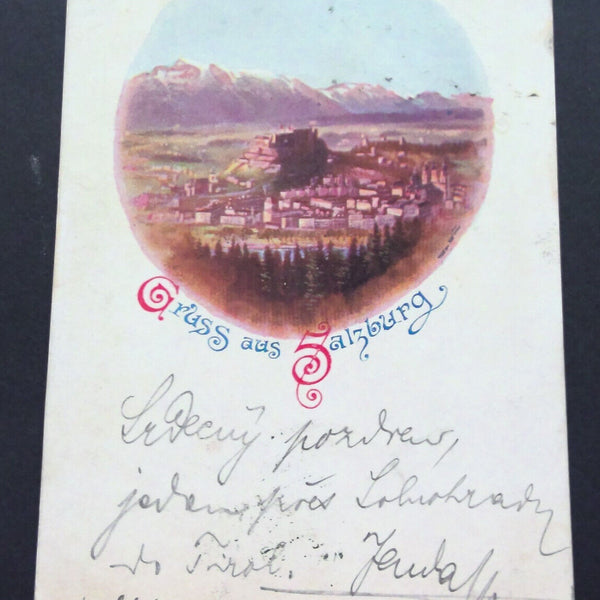 Gruss aus Salzburg
Srdečný pozdrav,
jedeme přes Solnohrady
do Tirol. Jenda